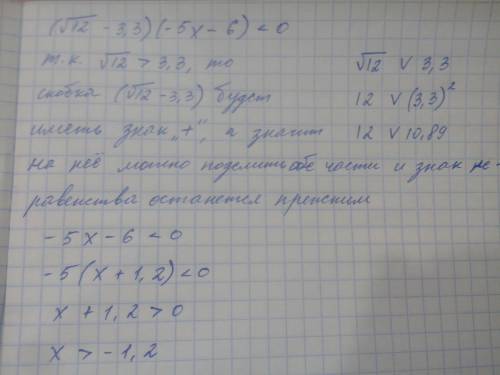 (√12 - 3,3)(-5x - 6) < 0
т.к. √12 > 3,3, то
√12 ∨ 3,3
скобка (√12 - 3,3) будет
12 ∨ (3,3)²
иметь знак „+“, а значит
12 ∨ 10,89
на неё можно поделить обе части и знак не-
равенства останется прежним
-5x - 6 < 0
-5(x + 1,2) < 0
x + 1,2 > 0
x > -1,2